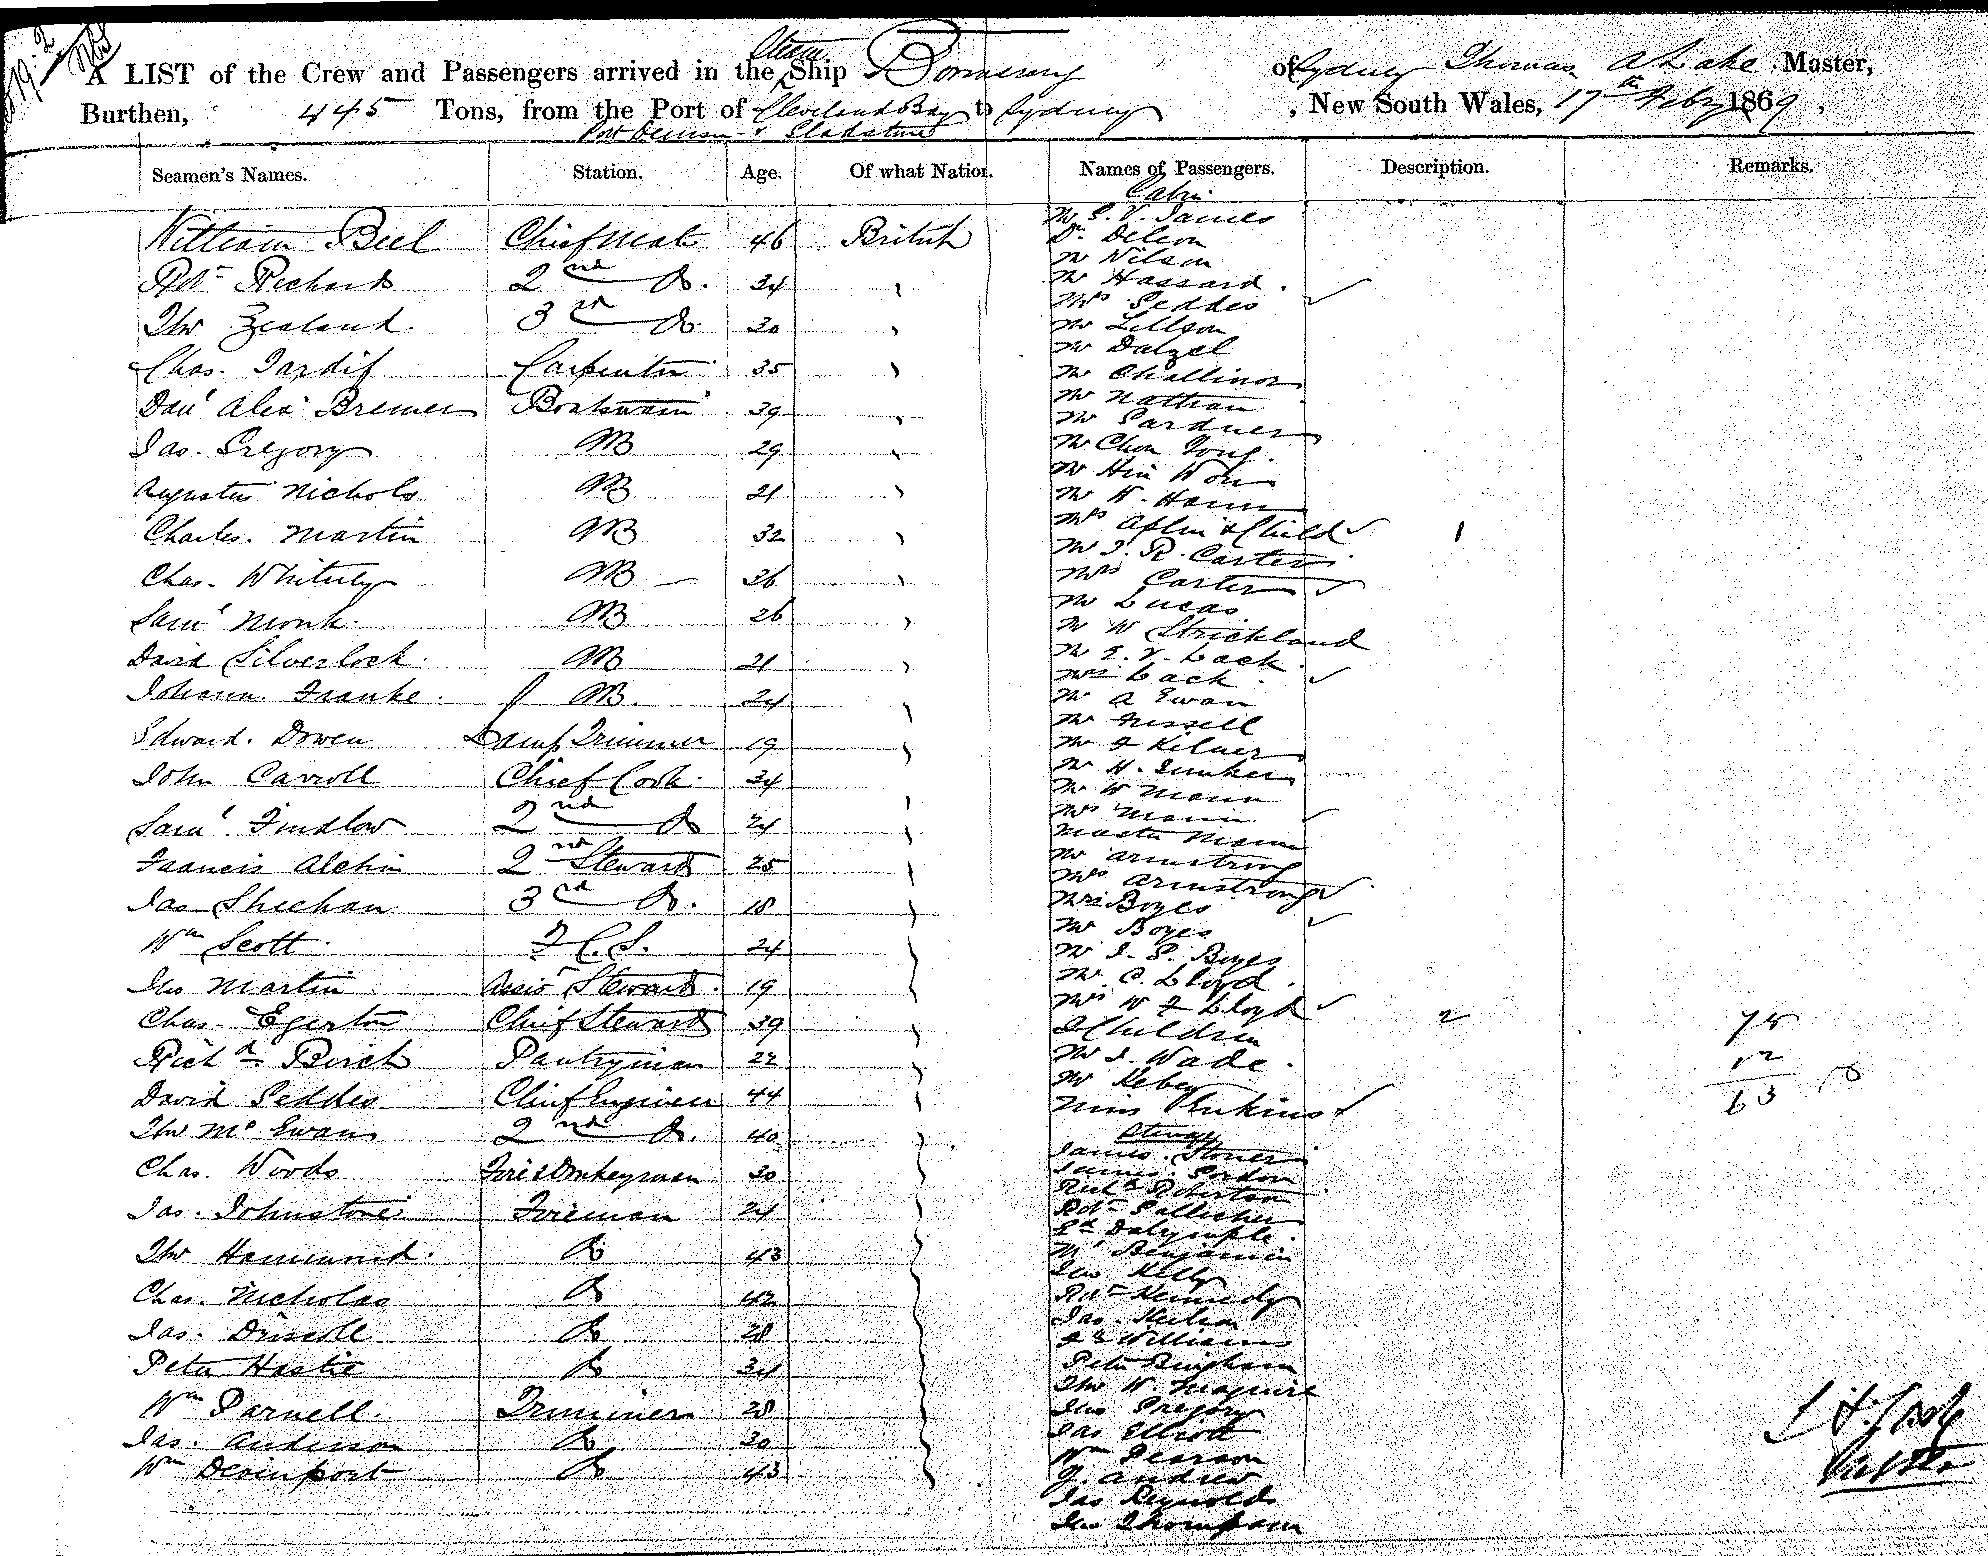 A LIST of the Crew and Passengers arrived in the Steam Ship Boomerang of Sydney Thomas A Lake Master,
Burthen, 445 Tons, from the Port of Cleveland Bay to Sydney, New South Wales, 17th Feby 1869.
Port Denison & Gladstone
Seamen's Names. Station. Age. Of what Nation. Names of Passengers. Description. Remarks.
William Beel Chief Mate 46 British
Robt Richards 2nd Do. 34
Thos Zealand 3rd Do. 30
Chas. Tardif Carpenter 35
Danl Alexr Bremer Boatswain 39
Jas. Gregory AB 29
Augustus Nichols AB 21
Charles. Martin AB 32
Chas. Whitely AB 36
Saml Monk AB 26
David Silverlock AB 21
Johann Franke AB 24
Edward. Dowen Lamp Trimmer 19
John Carroll Chief Cook 34
Saml. Findlow 2nd Do 24
Francis Alchin 2nd Steward 25
Jas Sheehan 3rd Do. 18
Wm Scott 24
Jno Martin Assis Steward 19
Chas. Egerton Chief Steward 39
Richd Birch Pantryman 22
David Geddes Chief Engineer 44
Thos McEwan 2nd Do. 40
Chas. Woods Fire & Donkeyman 30
Jas. Johnstone Fireman 24
Thos Hammond Do 43
Chas. Nicholas Do 42
Jas. Driscoll Do 28
Peter Hastie Do 34
Wm Parnell Trimmer 28
Jas. Anderson Do 30
Wm Devenport Do 43
Cabin
Mr E. V. James
Dr Deleon
Mr Nilson
Mr Hassard
Mrs Geddes
Mr Lillson
Mr Dalzel
Mr Challinor
Mr Nathan
Mr Gardner
Mr Chon Tong
Mr Hin Won
Mr W. Hann
Mrs Aplin & Child 1
Mr J. R. Carter
Mrs Carter
Mr Lucas
Mr W Strickland
Mr E. V. Lack
Mrs Lack
Mr A Ewan
Mr Fussell
Mr F Kilner
Mr H. Junker
Mr W Mann
Mrs Mann
Master Mann
Mr Armstrong
Mrs Armstrong
Mrs Boyes
Mr Boyes
Mr J. P. Boyes
Mr C. Lloyd
Mrs W F Lloyd
2 Children 2
Mr J. Wade
Mr Kebey
Miss Perkins
Steerage
James Stoner
James Gordon
Richd Robertson
Robt Gallisher
Ed Dalrymple
Mr Benjamin
Jno Kelly
Robt Kennedy
Jas Neilson
Williams
Peter Bingham
Thos W. Maguire
Jno Gregory
Jas Elliott
Wm Pearson
G. Andrew
Jas Reynolds
Jno Thompson
75
12
63
Master